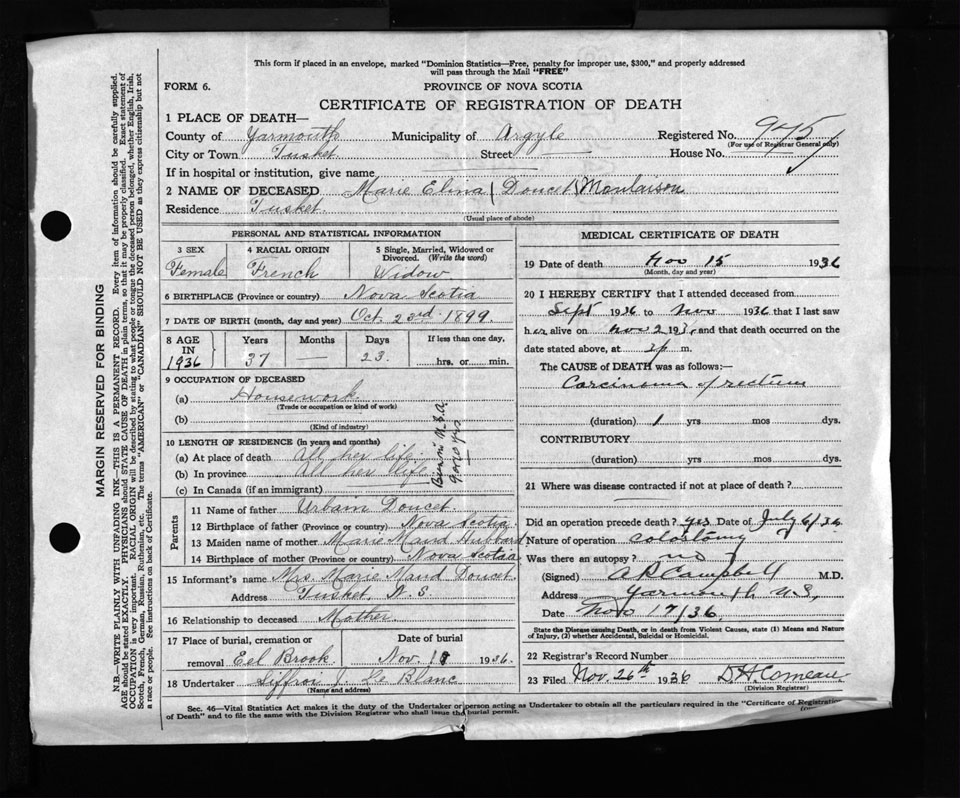 This form if placed in an envelope, marked "Dominion Statistics—Free, penalty for improper use, $300," and properly addressed
will pass through the Mail "FREE"
FORM 6.
PROVINCE OF NOVA SCOTIA
CERTIFICATE OF REGISTRATION OF DEATH
1 PLACE OF DEATH—
County of Yarmouth Municipality of Argyle Registered No. 945
(For use of Registrar General only)
City or Town Tusket Street — House No. —
If in hospital or institution, give name
2 NAME OF DECEASED Marie Elina (Doucet) Moulaison
Residence Tusket
(Usual place of abode)
PERSONAL AND STATISTICAL INFORMATION
3 SEX 4 RACIAL ORIGIN 5 Single, Married, Widowed or
Divorced. (Write the word)
Female French Widow
6 BIRTHPLACE (Province or country) Nova Scotia
7 DATE OF BIRTH (month, day and year) Oct 23rd 1899
8 AGE IN 1936 Years Months Days If less than one day,
37 — 23 hrs. or min.
9 OCCUPATION OF DECEASED
(a) Housework
(Trade or occupation or kind of work)
(b)
(Kind of industry)
10 LENGTH OF RESIDENCE (in years and months)
(a) At place of death All her life
(b) In province All her life
(c) In Canada (if an immigrant)
9 or 10 yrs
Parents
11 Name of father Urbain Doucet
12 Birthplace of father (Province or country) Nova Scotia
13 Maiden name of mother Marie Maud Hubbard
14 Birthplace of mother (Province or country) Nova Scotia
15 Informant's name Mrs. Marie Maud Doucet
Address Tusket, N.S.
16 Relationship to deceased Mother
17 Place of burial, cremation or Date of burial
removal Eel Brook Nov. 18 1936
18 Undertaker J. Le Blanc
(Name and address)
MEDICAL CERTIFICATE OF DEATH
19 Date of death Nov 15 1936
(Month, day and year)
20 I HEREBY CERTIFY that I attended deceased from
Sept 1936 to Nov 1936 that I last saw
her alive on Nov 2 193, and that death occurred on the
date stated above, at 2 p m.
The CAUSE of DEATH was as follows:—
Carcinoma of rectum
(duration) 1 yrs mos dys.
CONTRIBUTORY
(duration) yrs mos dys.
21 Where was disease contracted if not at place of death?
Did an operation precede death? yes Date of July 6/36
Nature of operation colostomy
Was there an autopsy? no
(Signed) A R Campbell M.D.
Address Yarmouth N.S.
Date Nov 17/36
State the Disease causing Death, or in Death from Violent Causes, state (1) Means and Nature
of Injury, (2) whether Accidental, Suicidal or Homicidal.
22 Registrar's Record Number
23 Filed Nov. 26th 1936 D H Comeau
(Division Registrar)
Sec. 46—Vital Statistics Act makes it the duty of the Undertaker or person acting as Undertaker to obtain all the particulars required in the "Certificate of Registration
of Death" and to file the same with the Division Registrar who shall issue the burial permit.
MARGIN RESERVED FOR BINDING
N.B.—WRITE PLAINLY WITH UNFADING INK—THIS IS A PERMANENT RECORD. Every item of information should be carefully supplied.
AGE should be stated EXACTLY. PHYSICIANS should STATE CAUSE OF DEATH in plain terms, so that it may be properly classified. Exact statement of
OCCUPATION is very important. RACIAL ORIGIN will be described by stating to what people or tongue the deceased person belonged, whether English, Irish,
Scotch, French, German, Russian, Ruthenian, etc. The terms "AMERICAN" or "CANADIAN" SHOULD NOT BE USED as they express citizenship but not
a race or people. See instructions on back of Certificate.